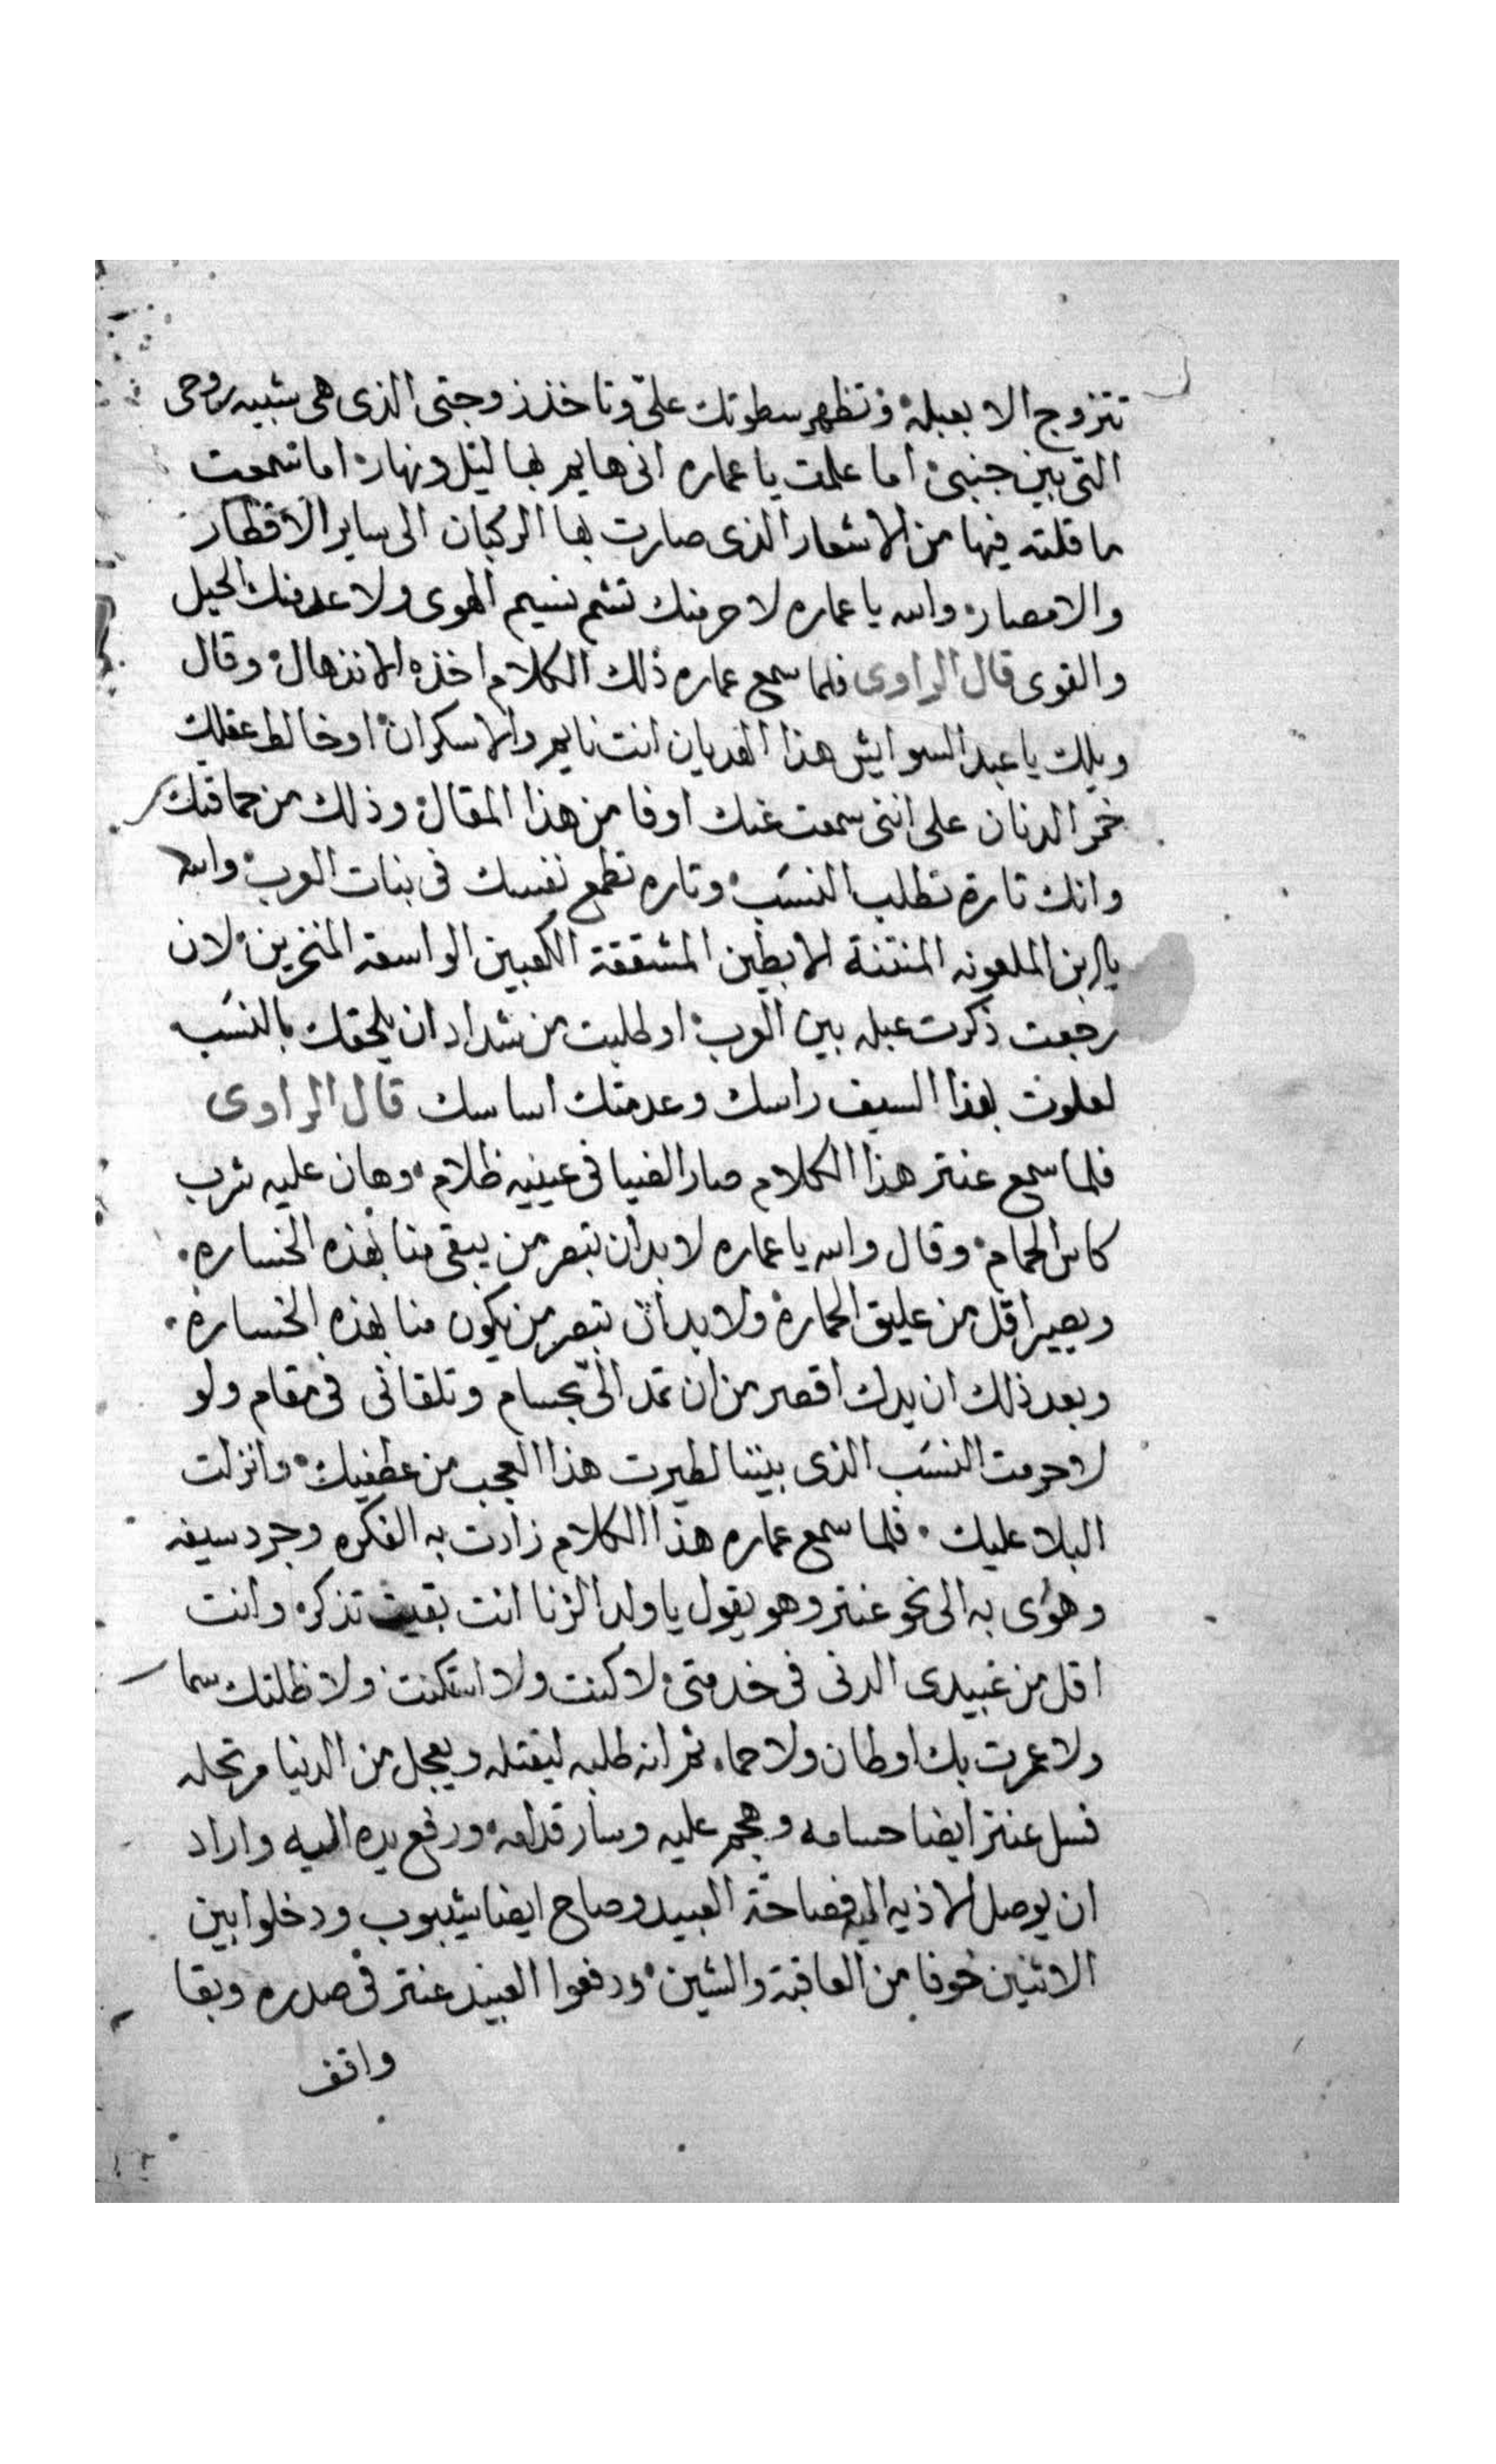 تتزوج الا بعبلة وتظهر سطوتك علىّ وتاخذ زوجتى الذى هى شبيه روحى
التى بين جنبىّ اما علمت يا عماره انى هايم بها ليل ونهار اما سمعت
ما قلته فيها من الاشعار الذى صارت بها الركبان الى ساير الاقطار
والامصار والله يا عماره لا حرمنك تشم نسيم الهوى ولا عدمنك الحيل
والقوى قال الراوى فلما سمع عماره ذلك الكلام اخذه الانذهال وقال
ويلك يا عبد السو ايش هذا الهديان انت نايم والا سكران او خالط عقلك
خمر الدنان على اننى سمعت عنك اوفا من هذا المقال وذلك من حماقتك
وانك تارة تطلب النسَب وتاره تطمع نفسك فى بنات العرب والله
يا ابن الملعونه المنتنة الابطين المشققة الكعبين الواسعة المنخرين لان
رجعت ذكرت عبله بين العرب او طلبت من شداد ان يلحقك بالنسَب
لعلوت بهذا السيف راسك وعدمتك اساسك قال الراوى
فلما سمع عنتر هذا الكلام صار الضيا فى عينيه ظلام وهان عليه شرب
كاس الحمام وقال والله يا عماره لا بد ان تبصر من يبقى منا بهذه الخساره
ويصير اقل من عليق الحمارة ولا بد ان تبصر من يكون منا بهذه الخسارة
وبعد ذلك ان يدك اقصر من ان تمد الىّ بحسام وتلقانى فى مقام ولو
لا حرمت النسَب الذى بيننا لطيرت هذا العجب من عطفيك وانزلت
البلا عليك فلما سمع عماره هذا الكلام زادت به الفكره وجرد سيفه
وهوى به الى نحو عنتر وهو يقول يا ولد الزنا انت بقيت تذكره وانت
اقل من عبيدى الدنى فى خدمتى لا كنت ولا استكنت ولا ظلتك سما
ولا عمرت بك اوطان ولا حما ثم انه طلبه ليقتله ويعجل من الدنيا مرتحله
فسل عنتر ايضا حسامه وهجم عليه وسار قدامه ورفع يده اليه واراد
ان يوصل الاذيه اليه فصاحة العبيد وصاح ايضا شيبوب ودخلوا بين
الاثنين خوفا من العاقبة والشين ودفعوا العبيد عنتر فى صدره وبقا
واقف